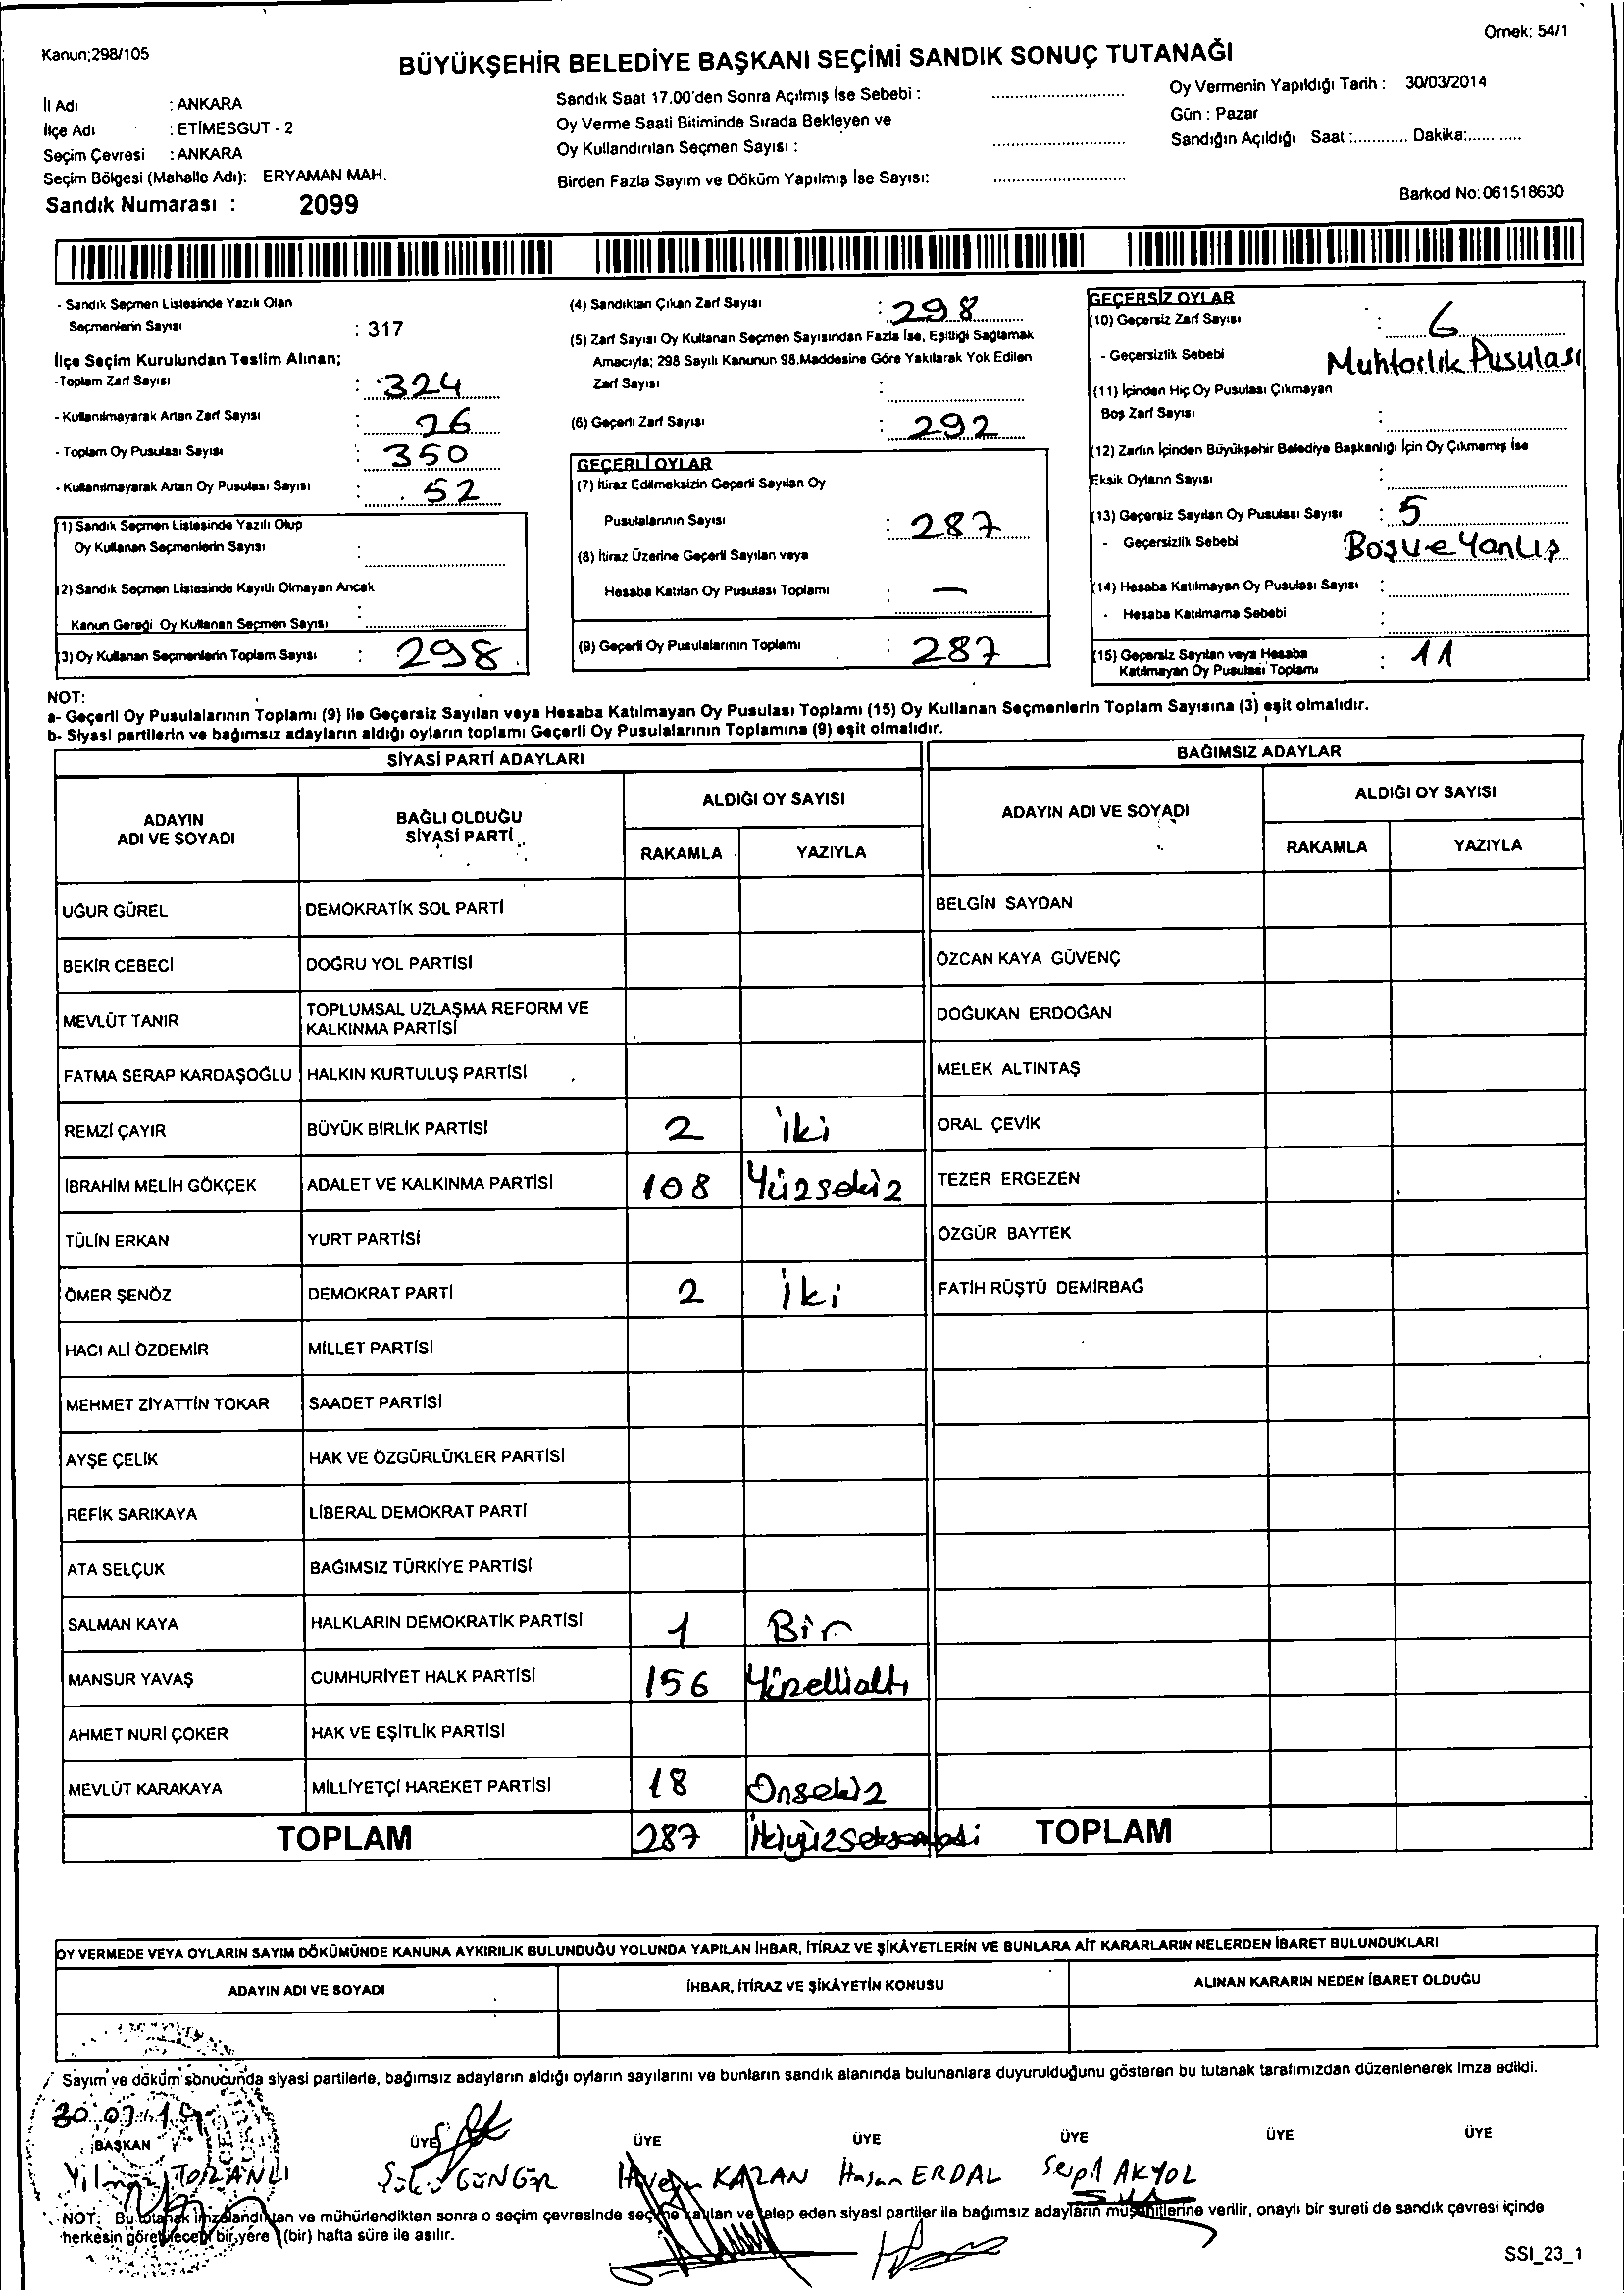 Kanun;298/105
Örnek: 54/1
BÜYÜKŞEHİR BELEDİYE BAŞKANI SEÇİMİ SANDIK SONUÇ TUTANAĞI
İl Adı : ANKARA
İlçe Adı : ETİMESGUT - 2
Seçim Çevresi : ANKARA
Seçim Bölgesi (Mahalle Adı): ERYAMAN MAH.
Sandık Numarası : 2099
Sandık Saat 17.00'den Sonra Açılmış İse Sebebi : ..............................
Oy Verme Saati Bitiminde Sırada Bekleyen ve
Oy Kullandırılan Seçmen Sayısı : ..............................
Birden Fazla Sayım ve Döküm Yapılmış İse Sayısı: ..............................
Oy Vermenin Yapıldığı Tarih : 30/03/2014
Gün : Pazar
Sandığın Açıldığı Saat :............ Dakika:............
Barkod No: 061518630
- Sandık Seçmen Listesinde Yazılı Olan
Seçmenlerin Sayısı : 317
İlçe Seçim Kurulundan Teslim Alınan;
-Toplam Zarf Sayısı : 324
- Kullanılmayarak Artan Zarf Sayısı : 26
- Toplam Oy Pusulası Sayısı : 350
- Kullanılmayarak Artan Oy Pusulası Sayısı : 52
(1) Sandık Seçmen Listesinde Yazılı Olup
Oy Kullanan Seçmenlerin Sayısı :
(2) Sandık Seçmen Listesinde Kayıtlı Olmayan Ancak
Kanun Gereği Oy Kullanan Seçmen Sayısı :
(3) Oy Kullanan Seçmenlerin Toplam Sayısı : 298
(4) Sandıktan Çıkan Zarf Sayısı : 298
(5) Zarf Sayısı Oy Kullanan Seçmen Sayısından Fazla İse, Eşitliği Sağlamak
Amacıyla; 298 Sayılı Kanunun 98.Maddesine Göre Yakılarak Yok Edilen
Zarf Sayısı :
(6) Geçerli Zarf Sayısı : 292
GEÇERLİ OYLAR
(7) İtiraz Edilmeksizin Geçerli Sayılan Oy
Pusulalarının Sayısı : 287
(8) İtiraz Üzerine Geçerli Sayılan veya
Hesaba Katılan Oy Pusulası Toplamı : —
(9) Geçerli Oy Pusulalarının Toplamı : 287
GEÇERSİZ OYLAR
(10) Geçersiz Zarf Sayısı : 6
- Geçersizlik Sebebi Muhtarlık Pusulası
(11) İçinden Hiç Oy Pusulası Çıkmayan
Boş Zarf Sayısı :
(12) Zarfın İçinden Büyükşehir Belediye Başkanlığı İçin Oy Çıkmamış İse
Eksik Oyların Sayısı :
(13) Geçersiz Sayılan Oy Pusulası Sayısı : 5
- Geçersizlik Sebebi Boş ve Yanlış
(14) Hesaba Katılmayan Oy Pusulası Sayısı :
- Hesaba Katılmama Sebebi :
(15) Geçersiz Sayılan veya Hesaba
Katılmayan Oy Pusulası Toplamı : 11
NOT:
a- Geçerli Oy Pusulalarının Toplamı (9) ile Geçersiz Sayılan veya Hesaba Katılmayan Oy Pusulası Toplamı (15) Oy Kullanan Seçmenlerin Toplam Sayısına (3) eşit olmalıdır.
b- Siyasi partilerin ve bağımsız adayların aldığı oyların toplamı Geçerli Oy Pusulalarının Toplamına (9) eşit olmalıdır.
SİYASİ PARTİ ADAYLARI
BAĞIMSIZ ADAYLAR
ADAYIN
ADI VE SOYADI
BAĞLI OLDUĞU
SİYASİ PARTİ
ALDIĞI OY SAYISI
RAKAMLA YAZIYLA
ADAYIN ADI VE SOYADI
ALDIĞI OY SAYISI
RAKAMLA YAZIYLA
UĞUR GÜREL DEMOKRATİK SOL PARTİ BELGİN SAYDAN
BEKİR CEBECİ DOĞRU YOL PARTİSİ ÖZCAN KAYA GÜVENÇ
MEVLÜT TANIR TOPLUMSAL UZLAŞMA REFORM VE
KALKINMA PARTİSİ DOĞUKAN ERDOĞAN
FATMA SERAP KARDAŞOĞLU HALKIN KURTULUŞ PARTİSİ MELEK ALTINTAŞ
REMZİ ÇAYIR BÜYÜK BİRLİK PARTİSİ 2 iki ORAL ÇEVİK
İBRAHİM MELİH GÖKÇEK ADALET VE KALKINMA PARTİSİ 108 Yüzsekiz TEZER ERGEZEN
TÜLİN ERKAN YURT PARTİSİ ÖZGÜR BAYTEK
ÖMER ŞENÖZ DEMOKRAT PARTİ 2 İki FATİH RÜŞTÜ DEMİRBAĞ
HACI ALİ ÖZDEMİR MİLLET PARTİSİ
MEHMET ZİYATTİN TOKAR SAADET PARTİSİ
AYŞE ÇELİK HAK VE ÖZGÜRLÜKLER PARTİSİ
REFİK SARIKAYA LİBERAL DEMOKRAT PARTİ
ATA SELÇUK BAĞIMSIZ TÜRKİYE PARTİSİ
SALMAN KAYA HALKLARIN DEMOKRATİK PARTİSİ 1 Bir
MANSUR YAVAŞ CUMHURİYET HALK PARTİSİ 156 Yüzellialtı
AHMET NURİ ÇOKER HAK VE EŞİTLİK PARTİSİ
MEVLÜT KARAKAYA MİLLİYETÇİ HAREKET PARTİSİ 18 Onsekiz
TOPLAM 287 İkiyüzseksenyedi TOPLAM
OY VERMEDE VEYA OYLARIN SAYIM DÖKÜMÜNDE KANUNA AYKIRILIK BULUNDUĞU YOLUNDA YAPILAN İHBAR, İTİRAZ VE ŞİKÂYETLERİN VE BUNLARA AİT KARARLARIN NELERDEN İBARET BULUNDUKLARI
ADAYIN ADI VE SOYADI İHBAR, İTİRAZ VE ŞİKÂYETİN KONUSU ALINAN KARARIN NEDEN İBARET OLDUĞU
Sayım ve döküm sonucunda siyasi partilerle, bağımsız adayların aldığı oyların sayılarını ve bunların sandık alanında bulunanlara duyurulduğunu gösteren bu tutanak tarafımızdan düzenlenerek imza edildi.
BAŞKAN ÜYE ÜYE ÜYE ÜYE ÜYE ÜYE
GÜNGÖR KAZAN Hasan ERDAL Serpil AKYOL
NOT: Bu tutanak imzalandıktan ve mühürlendikten sonra o seçim çevresinde seçime katılan ve talep eden siyasi partiler ile bağımsız adayların müşahitlerine verilir, onaylı bir sureti de sandık çevresi içinde
herkesin görebileceği bir yere 1 (bir) hafta süre ile asılır.
SSI_23_1